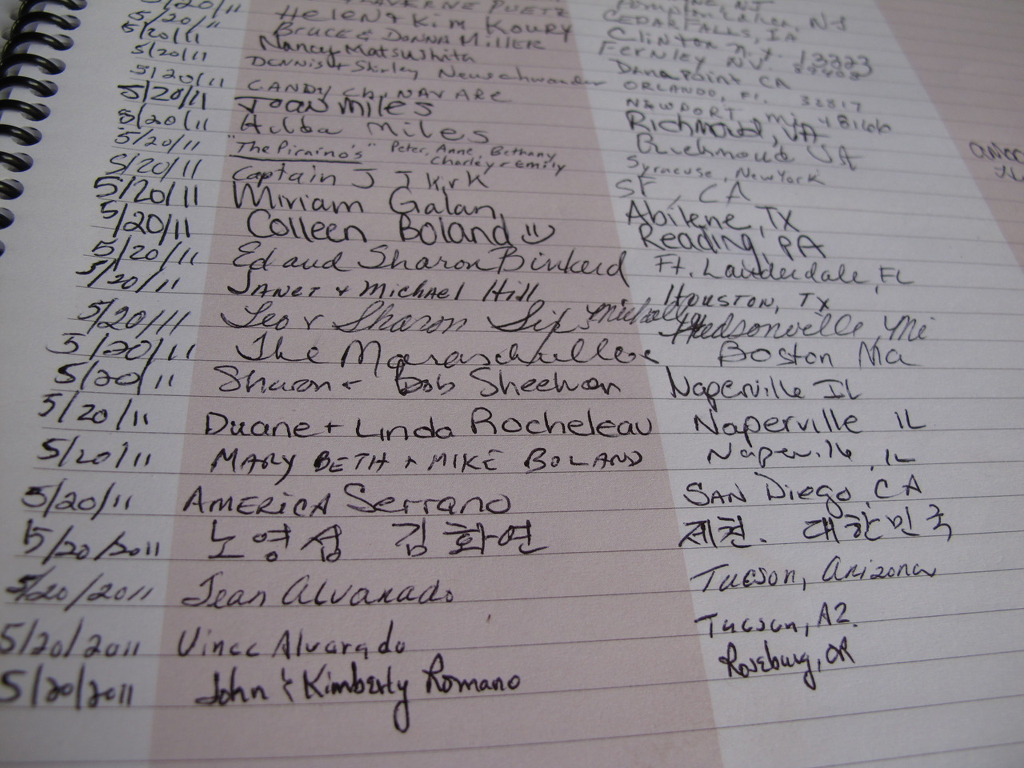 5/20/11 NJ
5/20/11 Helen & Kim Koury CEDAR FALLS, IA
5/20/11 Bruce & Donna Miller Clinton N.Y. 13323
5/20/11 Nancy Matsushita Fernley NV
5/20/11 DENNIS & Shirley Neuschwander Dana Point CA
5/20/11 CANDY CHINAVARE ORLANDO, FL. 32817
5/20/11 Joan Miles NEWPORT, MI 48166
Richmond, VA
5/20/11 Alba Miles Richmond VA
5/20/11 "The Piraino's" Peter, Anne, Bethany, Charley & Emily Syracuse, New York
5/20/11 Captain J T Kirk SF, CA
5/20/11 Miriam Galan Abilene, TX
5/20/11 Colleen Boland Reading, PA
5/20/11 Ed and Sharon Binkerd Ft. Lauderdale, FL
5/20/11 JANET & Michael Hill HOUSTON, TX
5/20/11 Leo & Sharon Hudsonville, Mi
5/20/11 The Boston Ma
5/20/11 Sharon & Bob Sheehan Naperville IL
5/20/11 Duane + Linda Rocheleau Naperville IL
5/20/11 MARY BETH + MIKE BOLAND Naperville, IL
5/20/11 AMERICA Serrano SAN Diego, CA
5/20/2011 노영섭 김화연 제천. 대한민국
5/20/2011 Jean Alvarado Tucson, Arizona
5/20/2011 Vince Alvarado Tucson, AZ.
5/20/2011 John & Kimberly Romano Roseburg, OR